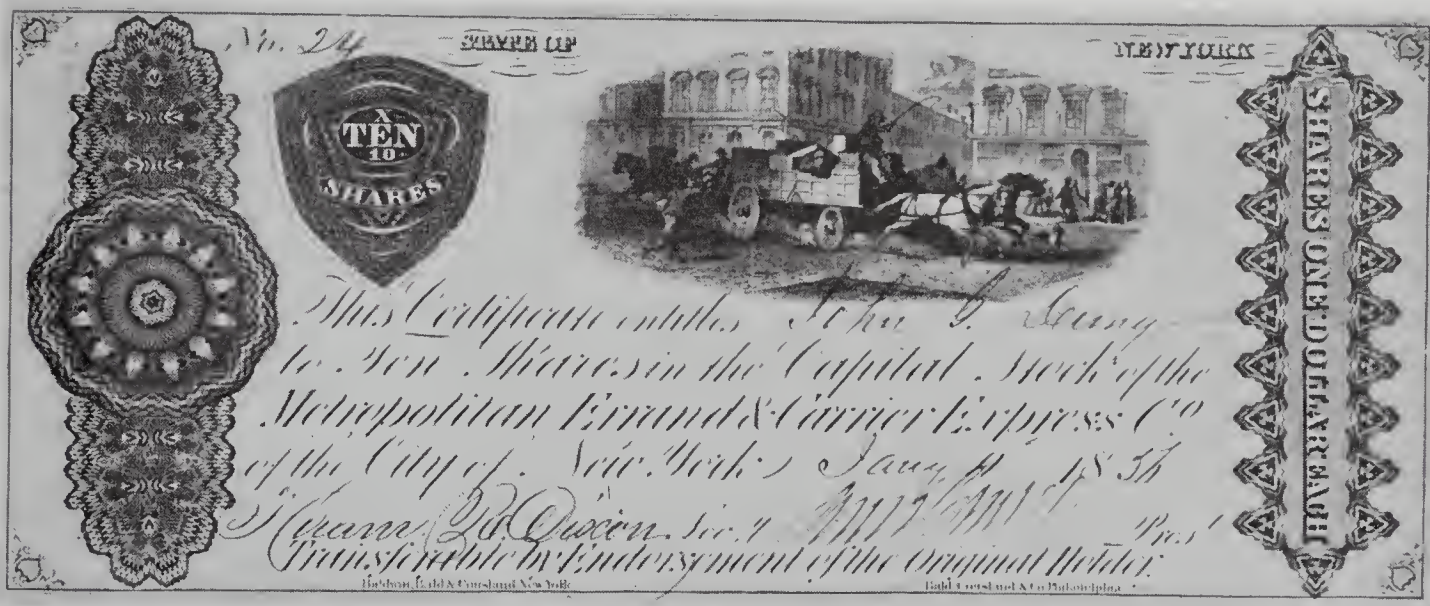 No. 24
STATE OF
NEW YORK
X
TEN
10
SHARES
This Certificate entitles John
to Ten Shares in the Capital Stock of the
Metropolitan Errand & Carrier Express Co
of the City of New York, Jany 18
Hiram Dixon Sec.y Prest
Transferable by Endorsement of the Original Holder
Baldwin, Bald & Cousland New York
Bald, Cousland & Co Philadelphia
SHARES ONE DOLLAR EACH